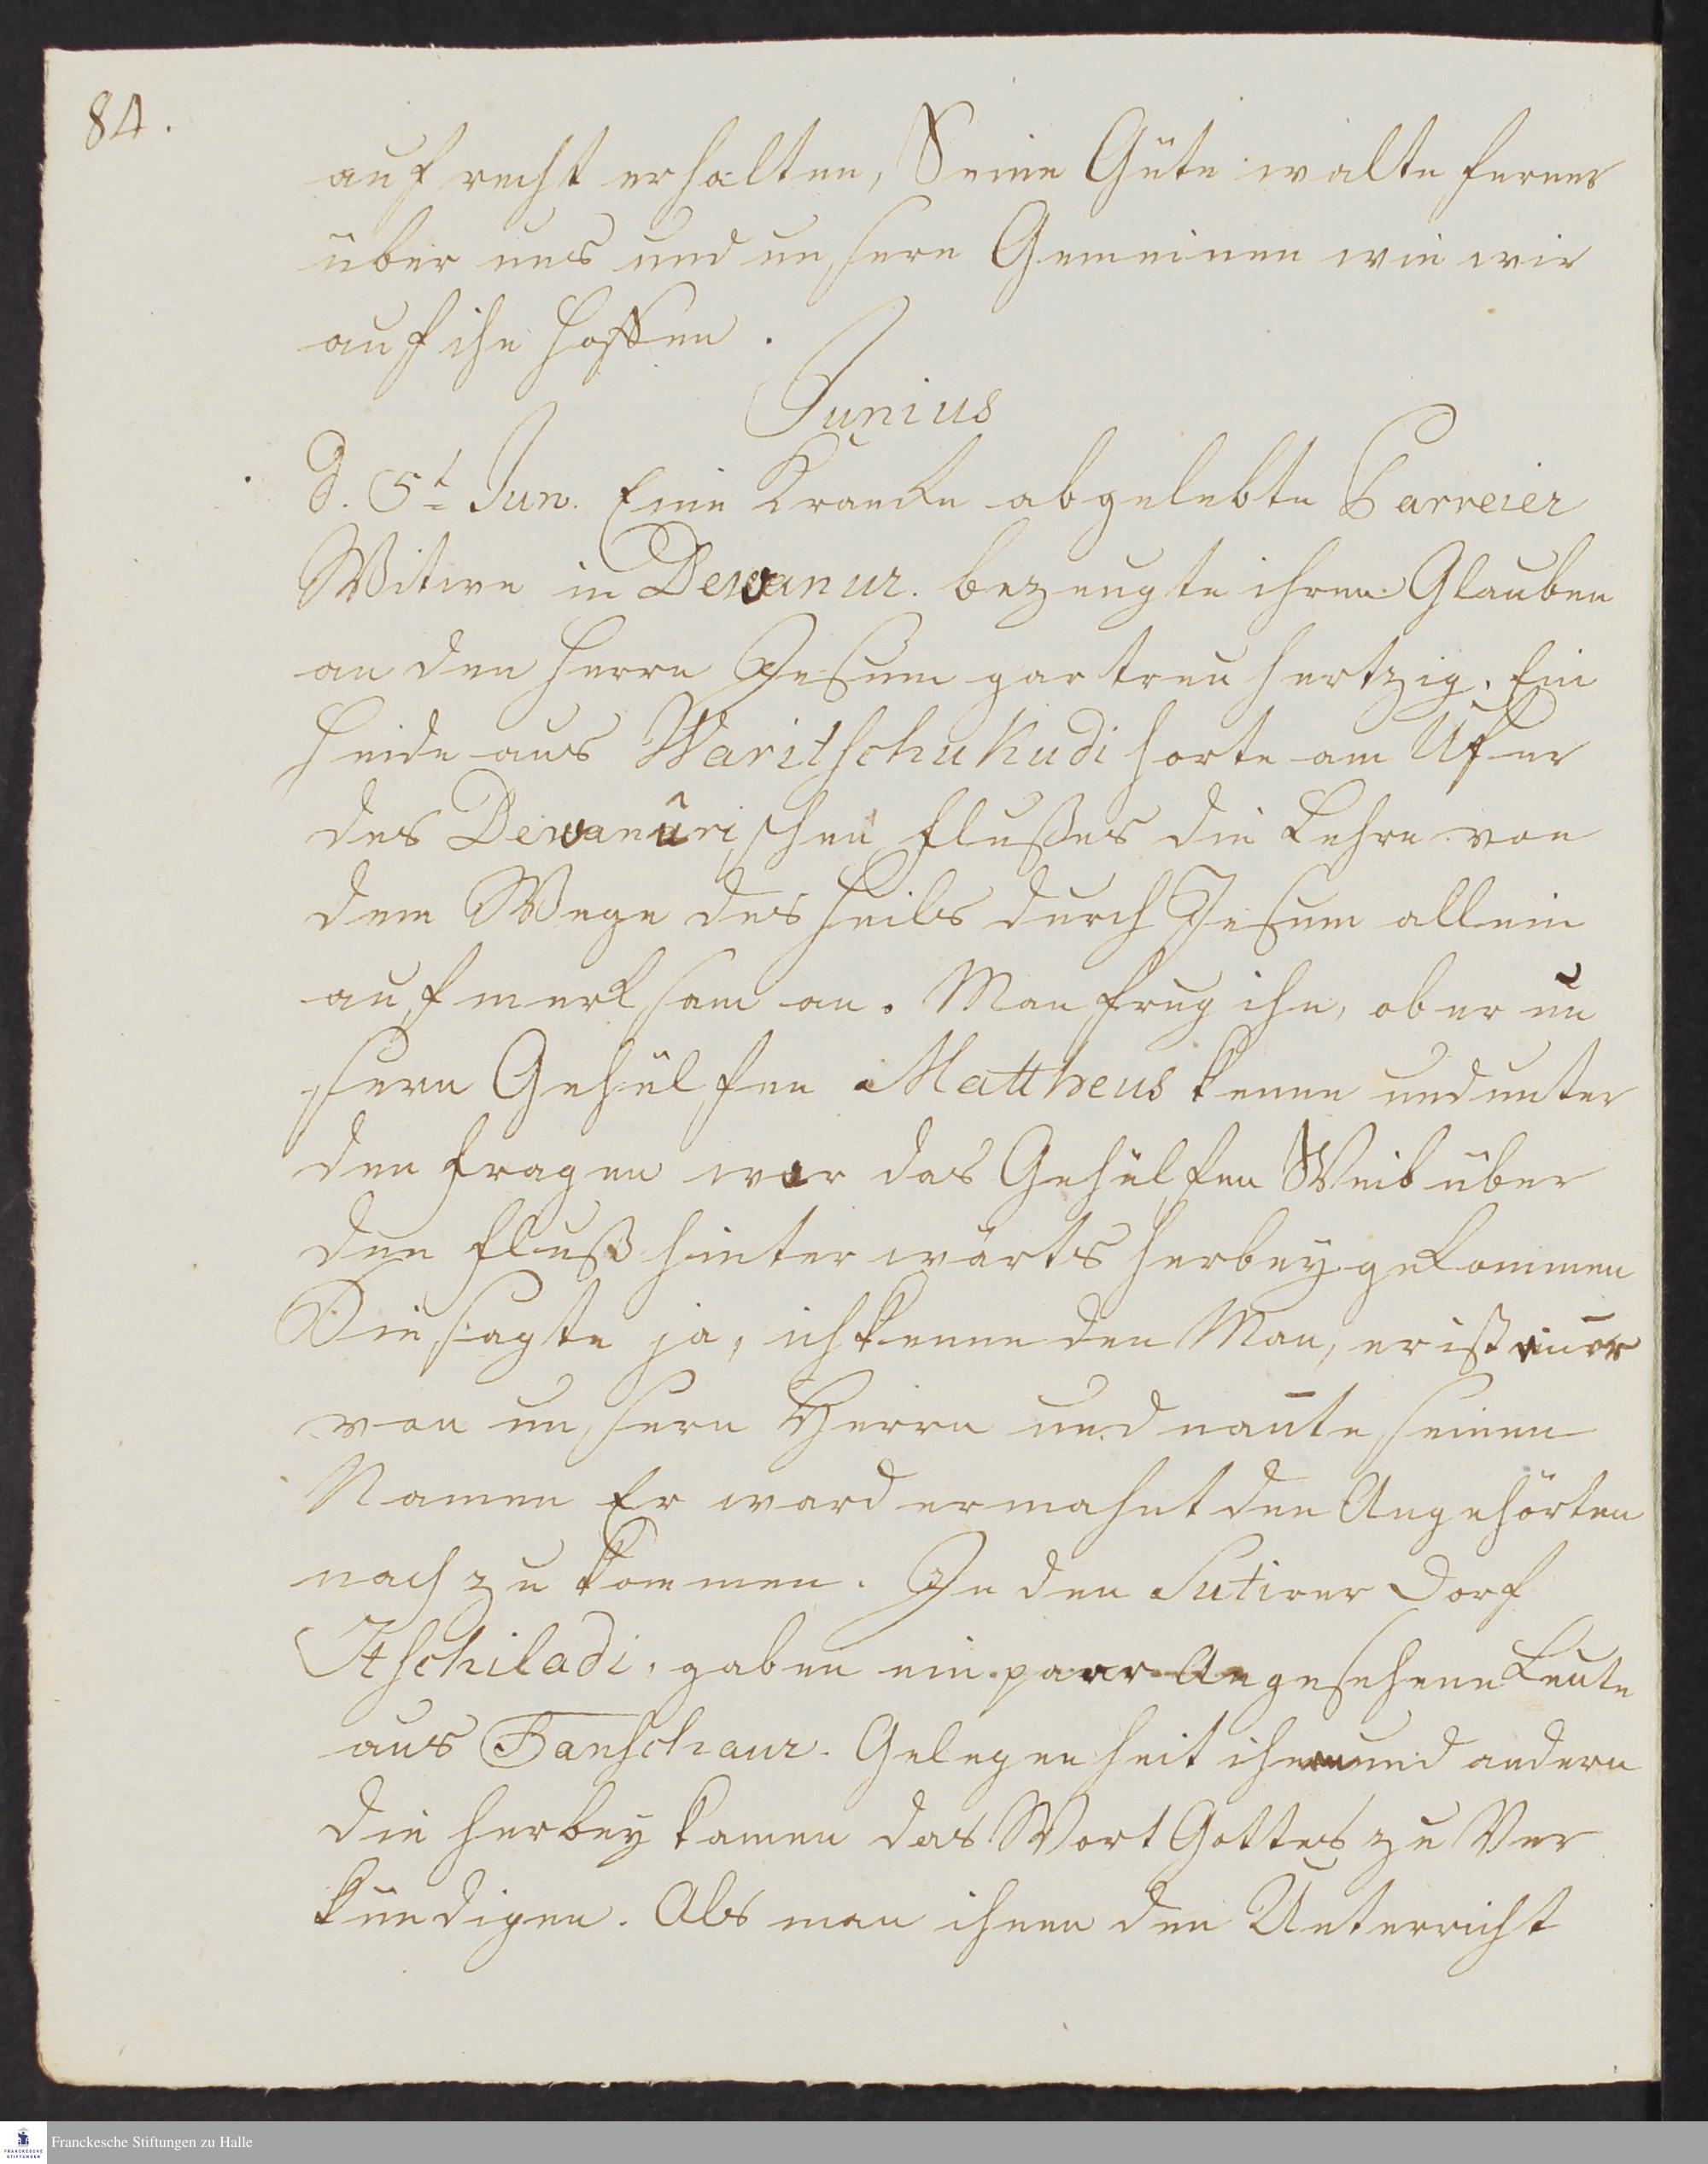 84.
aufrecht erhalten, Seine Güte walte ferner
über uns und unsere Gemeinen wie wir
auf ihn hoffen.
Junius
d. 5t Jun. Eine Krancke abgelebte Parreier
Witwe in Dewanur. bezeugte ihren Glauben
an den Herrn Jesum gar treuhertzig. Ein
Heide aus Waritschukudi horte am Ufer
des Dewanûrischen Flußes die Lehre von
dem Wege des Heils durch Jesum allein
aufmerksam an. Man frug ihn, ob er un
sern Gehülfen Mattheus kenne und unter
den Fragen war das Gehülfen Weib über
den Fluß hinterwärts herbey gekommen
Die sagte ja, ich kenne den Man, er ist
von unsern Herrn und nan̄te seinen
Namen Er ward ermahnt den Angehörten
nach zu kommen. In den Sutirer Dorf
Itschiladi, gaben ein paar Angesehene Leute
aus Tanschaur. Gelegenheit ihnen und andern
die herbey kamen das Wort Gottes zu Ver
kündigen. Als man ihnen den Unterricht
Franckesche Stiftungen zu Halle
FRANCKESCHE
STIFTUNGEN